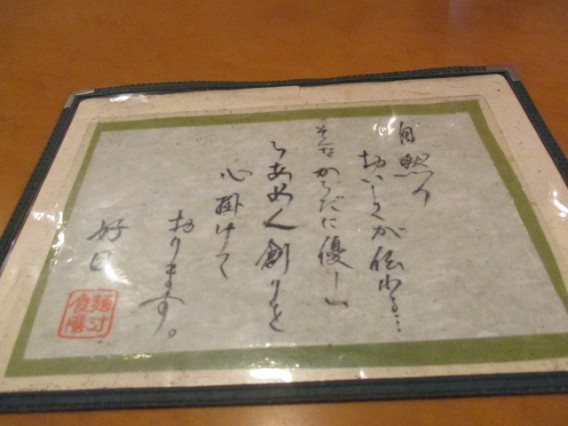 自然の
おいしさが伝わる…
そんなからだに優しい
らあめん創りを
心掛けて
おります。
好日
麺寸
食膳